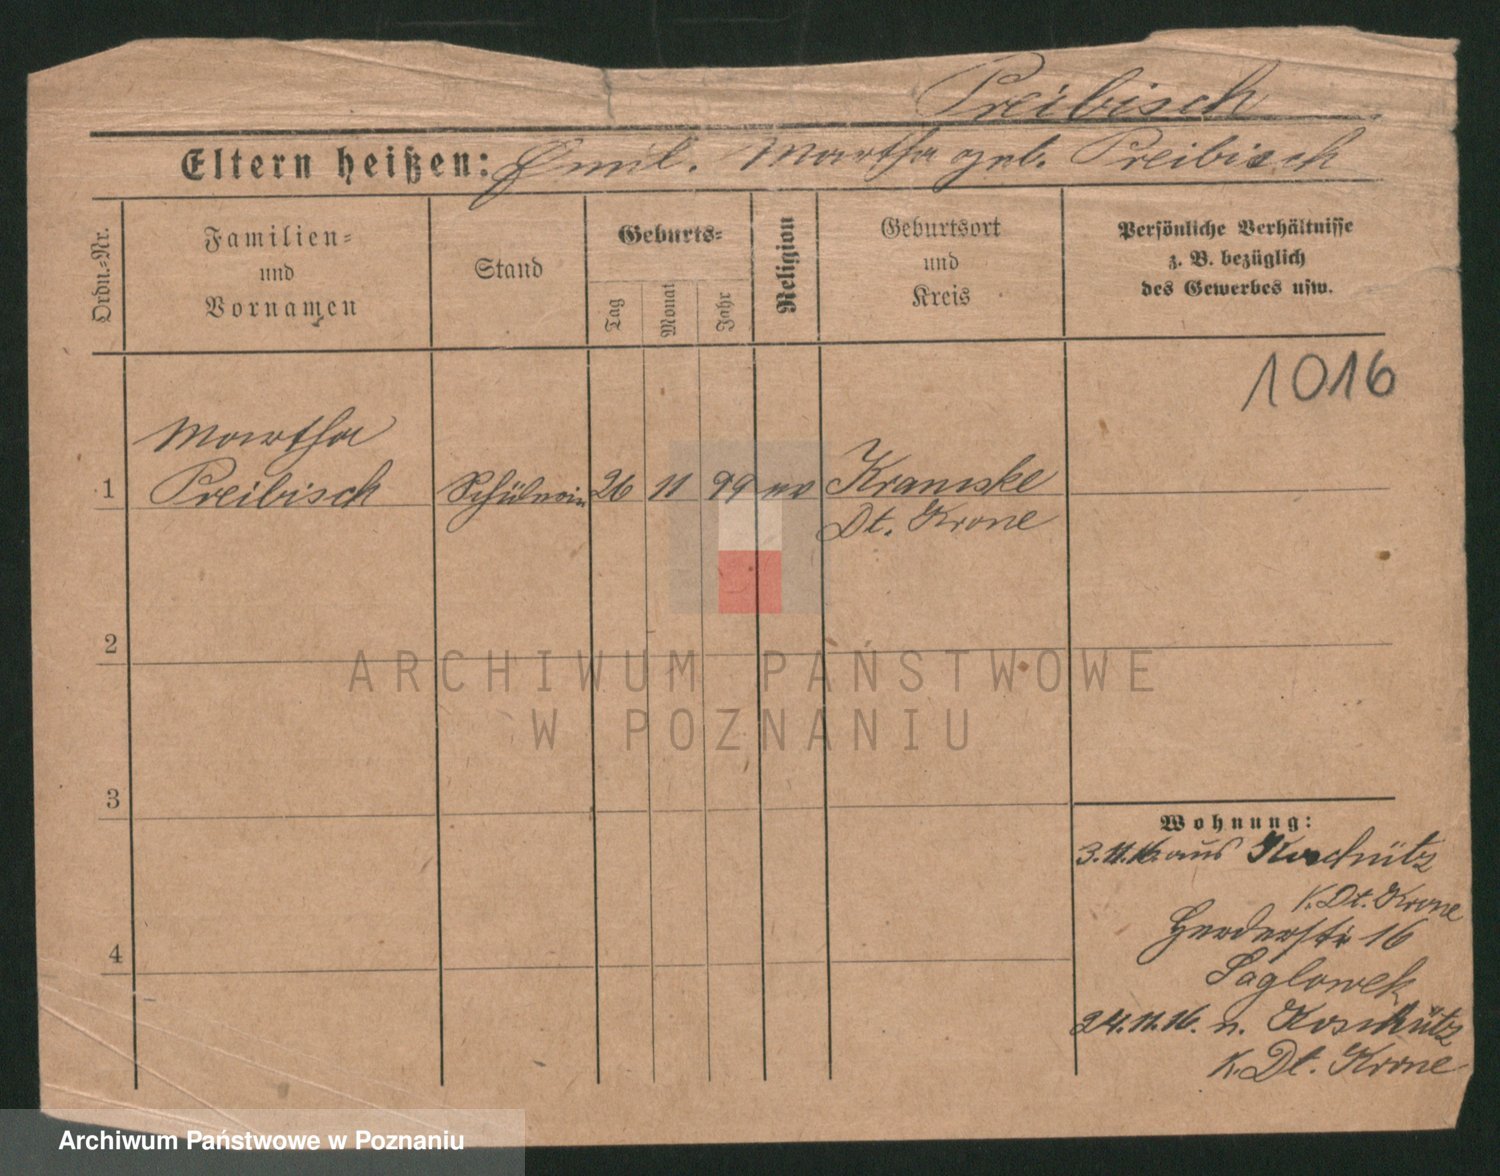 Preibisch
Eltern heißen: Emil. Martha geb. Preibisch
Ordn.-Nr.
Familien-
und
Vornamen
Stand
Geburts-
Tag
Monat
Jahr
Religion
Geburtsort
und
Kreis
Persönliche Verhältnisse
z. B. bezüglich
des Gewerbes usw.
1016
Martha
1 Preibisch Schülerin 26 11 99 ev Kramske
Dt. Krone
2
3
4
Wohnung:
3.11.16. aus Koschütz
K. Dt. Krone
Herderstr 16
24.11.16. n. Koschütz
K. Dt. Krone
ARCHIWUM PAŃSTWOWE
W POZNANIU
Archiwum Państwowe w Poznaniu